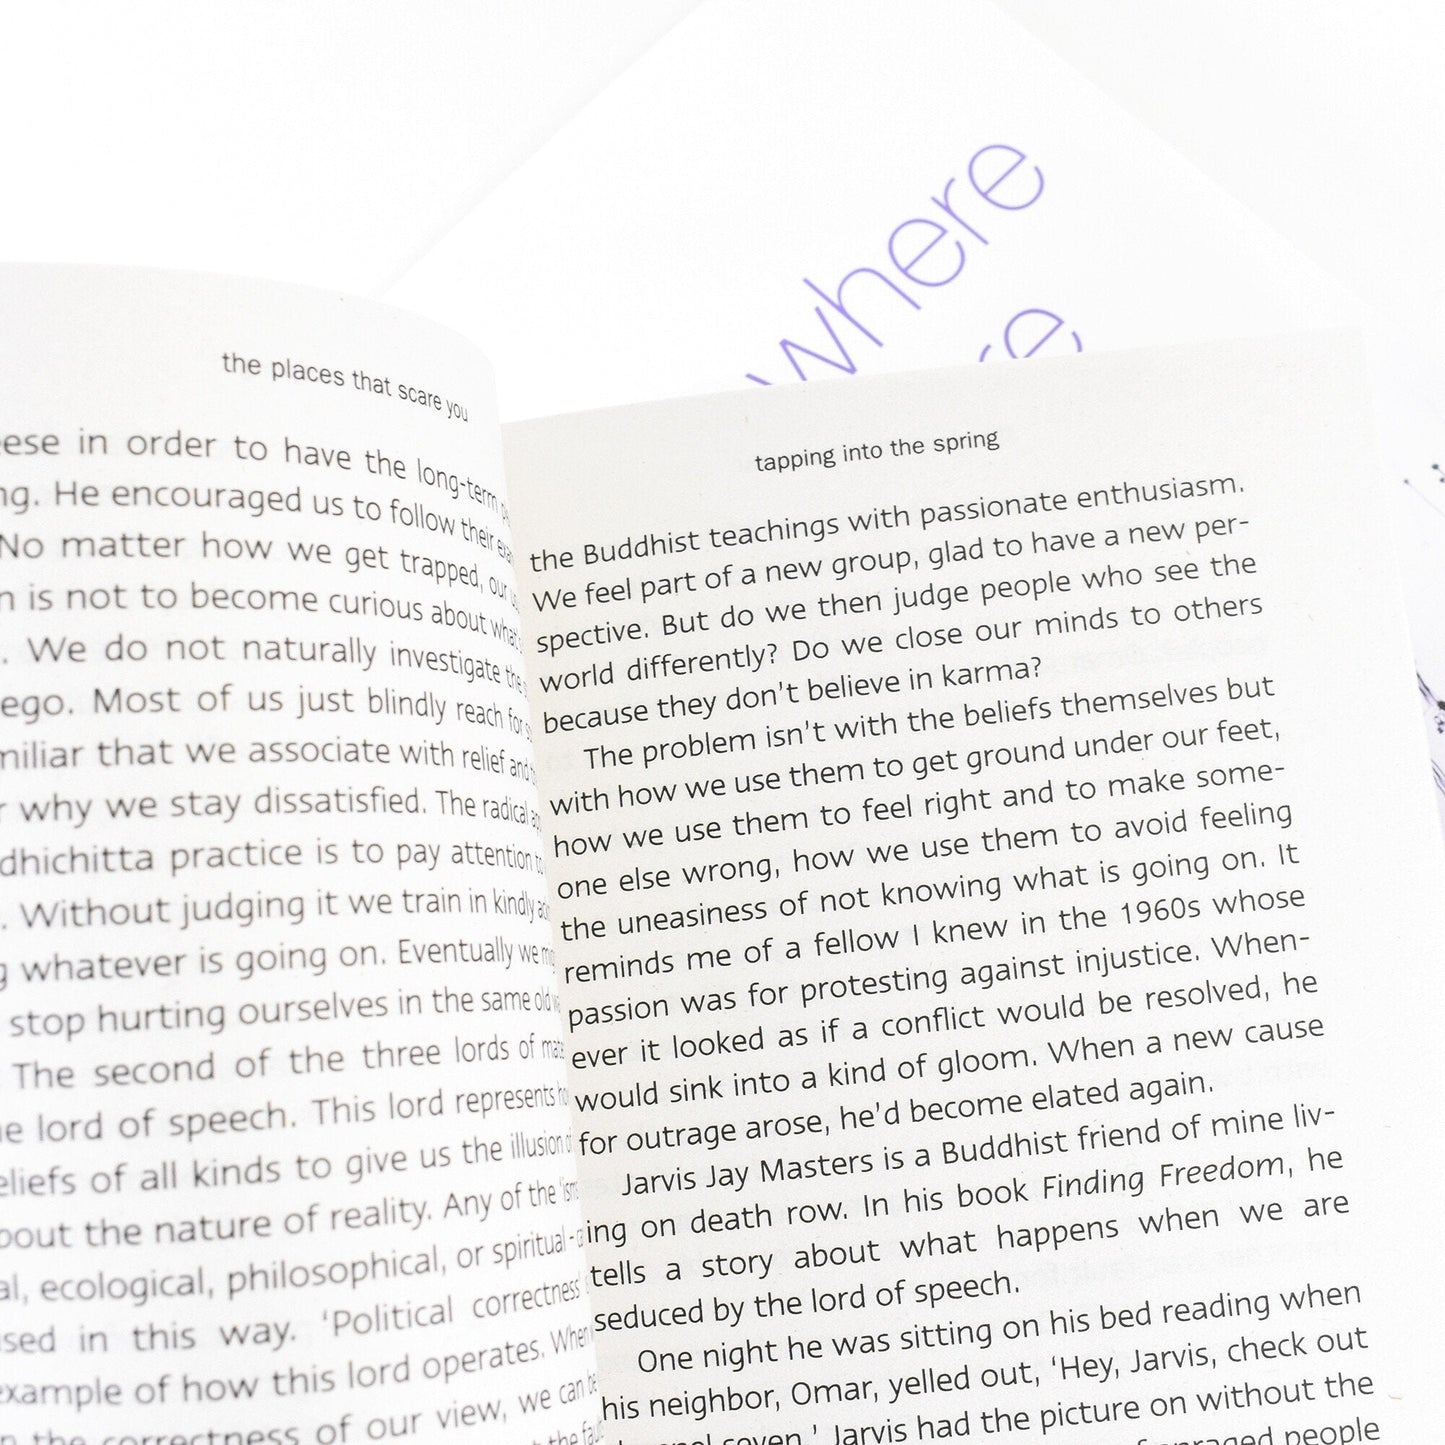 where
the places that scare you
in order to have the long-term
He encouraged us to follow their
No matter how we get trapped, our
is not to become curious about what
. We do not naturally investigate the
ego. Most of us just blindly reach for
that we associate with relief and
why we stay dissatisfied. The radical
practice is to pay attention to
. Without judging it we train in kindly
whatever is going on. Eventually we
stop hurting ourselves in the same old
The second of the three lords of
lord of speech. This lord represents
of all kinds to give us the illusion of
the nature of reality. Any of the
ecological, philosophical, or spiritual-
in this way. ‘Political correctness’
example of how this lord operates. When
the correctness of our view, we can be
the
tapping into the spring
the Buddhist teachings with passionate enthusiasm.
We feel part of a new group, glad to have a new per-
spective. But do we then judge people who see the
world differently? Do we close our minds to others
because they don't believe in karma?
The problem isn't with the beliefs themselves but
with how we use them to get ground under our feet,
how we use them to feel right and to make some-
one else wrong, how we use them to avoid feeling
the uneasiness of not knowing what is going on. It
reminds me of a fellow I knew in the 1960s whose
passion was for protesting against injustice. When-
ever it looked as if a conflict would be resolved, he
would sink into a kind of gloom. When a new cause
for outrage arose, he'd become elated again.
Jarvis Jay Masters is a Buddhist friend of mine liv-
ing on death row. In his book Finding Freedom, he
tells a story about what happens when we are
seduced by the lord of speech.
One night he was sitting on his bed reading when
his neighbor, Omar, yelled out, ‘Hey, Jarvis, check out
seven.’ Jarvis had the picture on without the
people